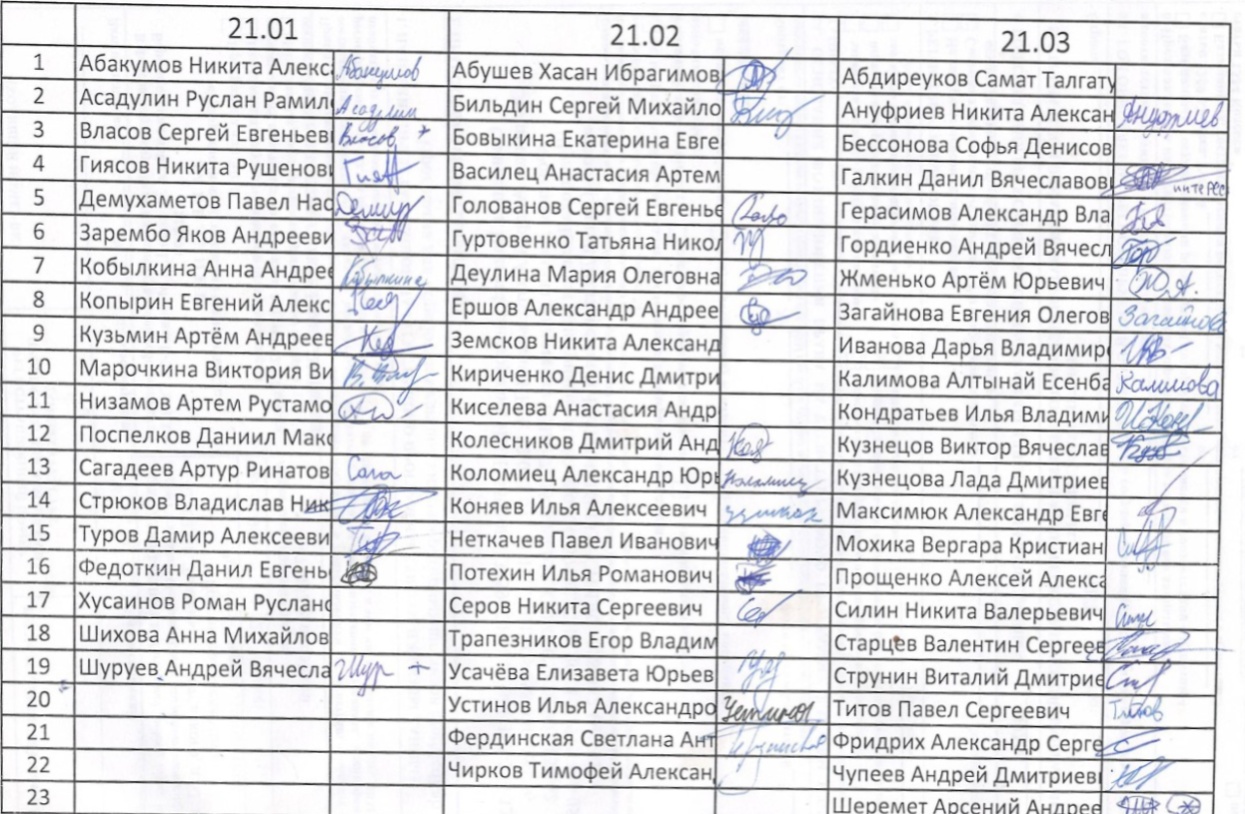 21.01 21.02 21.03
1 Абакумов Никита Алекс Абакумов Абушев Хасан Ибрагимов Абдиреуков Самат Талгату
2 Асадулин Руслан Рамил Асадулин Бильдин Сергей Михайло Ануфриев Никита Алексан Ануфриев
3 Власов Сергей Евгеньев Власов + Бовыкина Екатерина Евге Бессонова Софья Денисов
4 Гиясов Никита Рушенов Василец Анастасия Артем Галкин Данил Вячеславов интерес
5 Демухаметов Павел Нас Голованов Сергей Евгенье Герасимов Александр Вла
6 Зарембо Яков Андрееви Гуртовенко Татьяна Никол Гордиенко Андрей Вячесл Гор
7 Кобылкина Анна Андрее Кобылкина Деулина Мария Олеговна Жменько Артём Юрьевич
8 Копырин Евгений Алекс Ершов Александр Андрее Загайнова Евгения Олегов Загайнова
9 Кузьмин Артём Андреев Земсков Никита Александ Иванова Дарья Владимир
10 Марочкина Виктория Ви Кириченко Денис Дмитри Калимова Алтынай Есенба Калимова
11 Низамов Артем Рустамо Киселева Анастасия Андр Кондратьев Илья Владими
12 Поспелков Даниил Мак Колесников Дмитрий Анд Кузнецов Виктор Вячеслав
13 Сагадеев Артур Ринатов Сага Коломиец Александр Юрь Коломиец Кузнецова Лада Дмитриев
14 Стрюков Владислав Ник Коняев Илья Алексеевич Максимюк Александр Евге
15 Туров Дамир Алексееви Неткачев Павел Иванович Мохика Вергара Кристиан
16 Федоткин Данил Евгень Потехин Илья Романович Прощенко Алексей Алекса
17 Хусаинов Роман Руслано Серов Никита Сергеевич Силин Никита Валерьевич
18 Шихова Анна Михайлов Трапезников Егор Владим Старцев Валентин Сергеев
19 Шуруев Андрей Вячесла Шур + Усачёва Елизавета Юрьев Струнин Виталий Дмитрие
20 Устинов Илья Александро Устинов Титов Павел Сергеевич Титов
21 Фердинская Светлана Ант Фридрих Александр Серге
22 Чирков Тимофей Алексан Чупеев Андрей Дмитриев
23 Шеремет Арсений Андрее